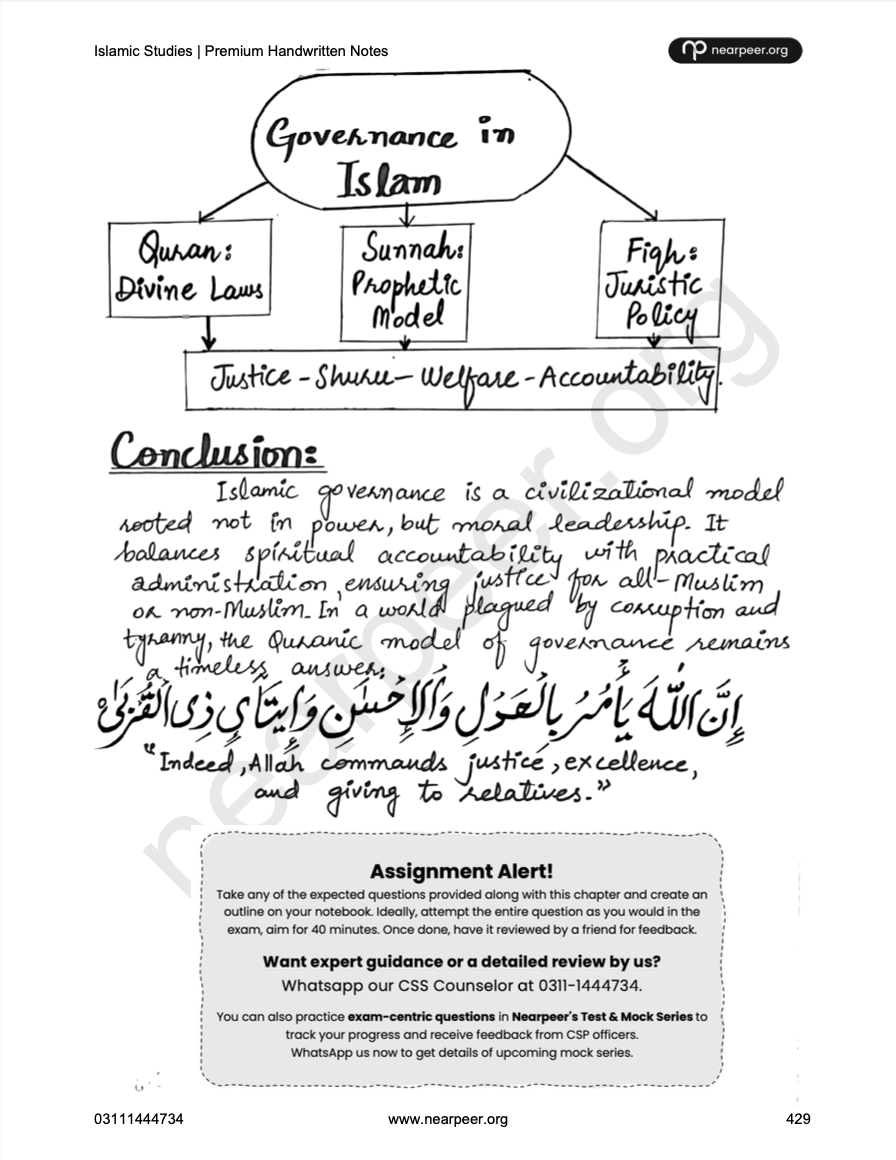 Islamic Studies | Premium Handwritten Notes
nearpeer.org
Governance in
Islam
Quran:
Divine Laws
Sunnah:
Prophetic
Model
Fiqh:
Juristic
Policy
Justice - Shura - Welfare - Accountability.
Conclusion:
Islamic governance is a civilizational model
rooted not in power, but moral leadership. It
balances spiritual accountability with practical
administration, ensuring justice for all - Muslim
or non-Muslim. In a world plagued by corruption and
tyranny, the Quranic model of governance remains
a timeless answer.
إِنَّ اللَّهَ يَأْمُرُ بِالْعَدْلِ وَالْإِحْسَٰنِ وَإِيتَآئِ ذِى الْقُرْبَىٰ
"Indeed, Allah commands justice, excellence,
and giving to relatives."
nearpeer.org
Assignment Alert!
Take any of the expected questions provided along with this chapter and create an
outline on your notebook. Ideally, attempt the entire question as you would in the
exam, aim for 40 minutes. Once done, have it reviewed by a friend for feedback.
Want expert guidance or a detailed review by us?
Whatsapp our CSS Counselor at 0311-1444734.
You can also practice exam-centric questions in Nearpeer's Test & Mock Series to
track your progress and receive feedback from CSP officers.
WhatsApp us now to get details of upcoming mock series.
03111444734
www.nearpeer.org
429